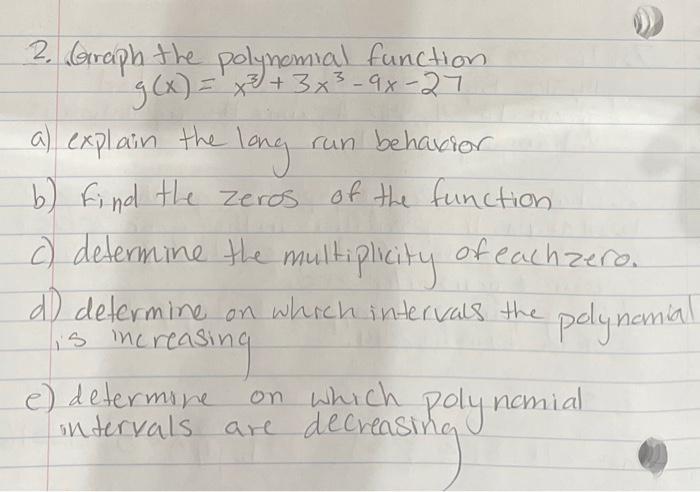 2. Graph the polynomial function
g(x) = x³ + 3x³ - 9x - 27
a) explain the long run behavior
b) Find the zeros of the function
c) determine the multiplicity of each zero.
d) determine on which intervals the polynomial
is increasing
e) determine on which polynomial
intervals are decreasing